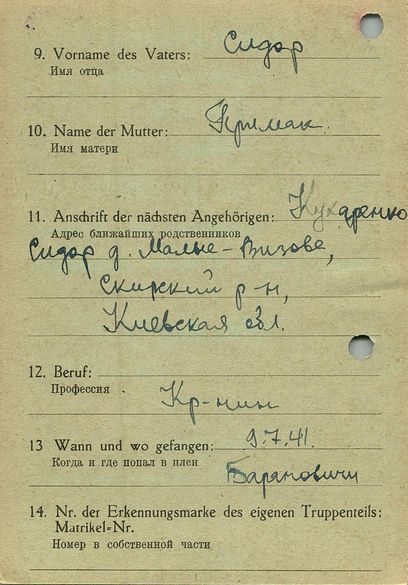 9. Vorname des Vaters: Сидор
Имя отца
10. Name der Mutter: Примак
Имя матери
11. Anschrift der nächsten Angehörigen: Кухаренко
Адрес ближайших родственников
Сидор д. Малые-Визове,
Скирский р-н,
Киевская обл.
12. Beruf:
Профессия
Кр-нин
13 Wann und wo gefangen: 9.7.41.
Когда и где попал в плен
Барановичи
14. Nr. der Erkennungsmarke des eigenen Truppenteils:
Matrikel-Nr.
Номер в собственной части